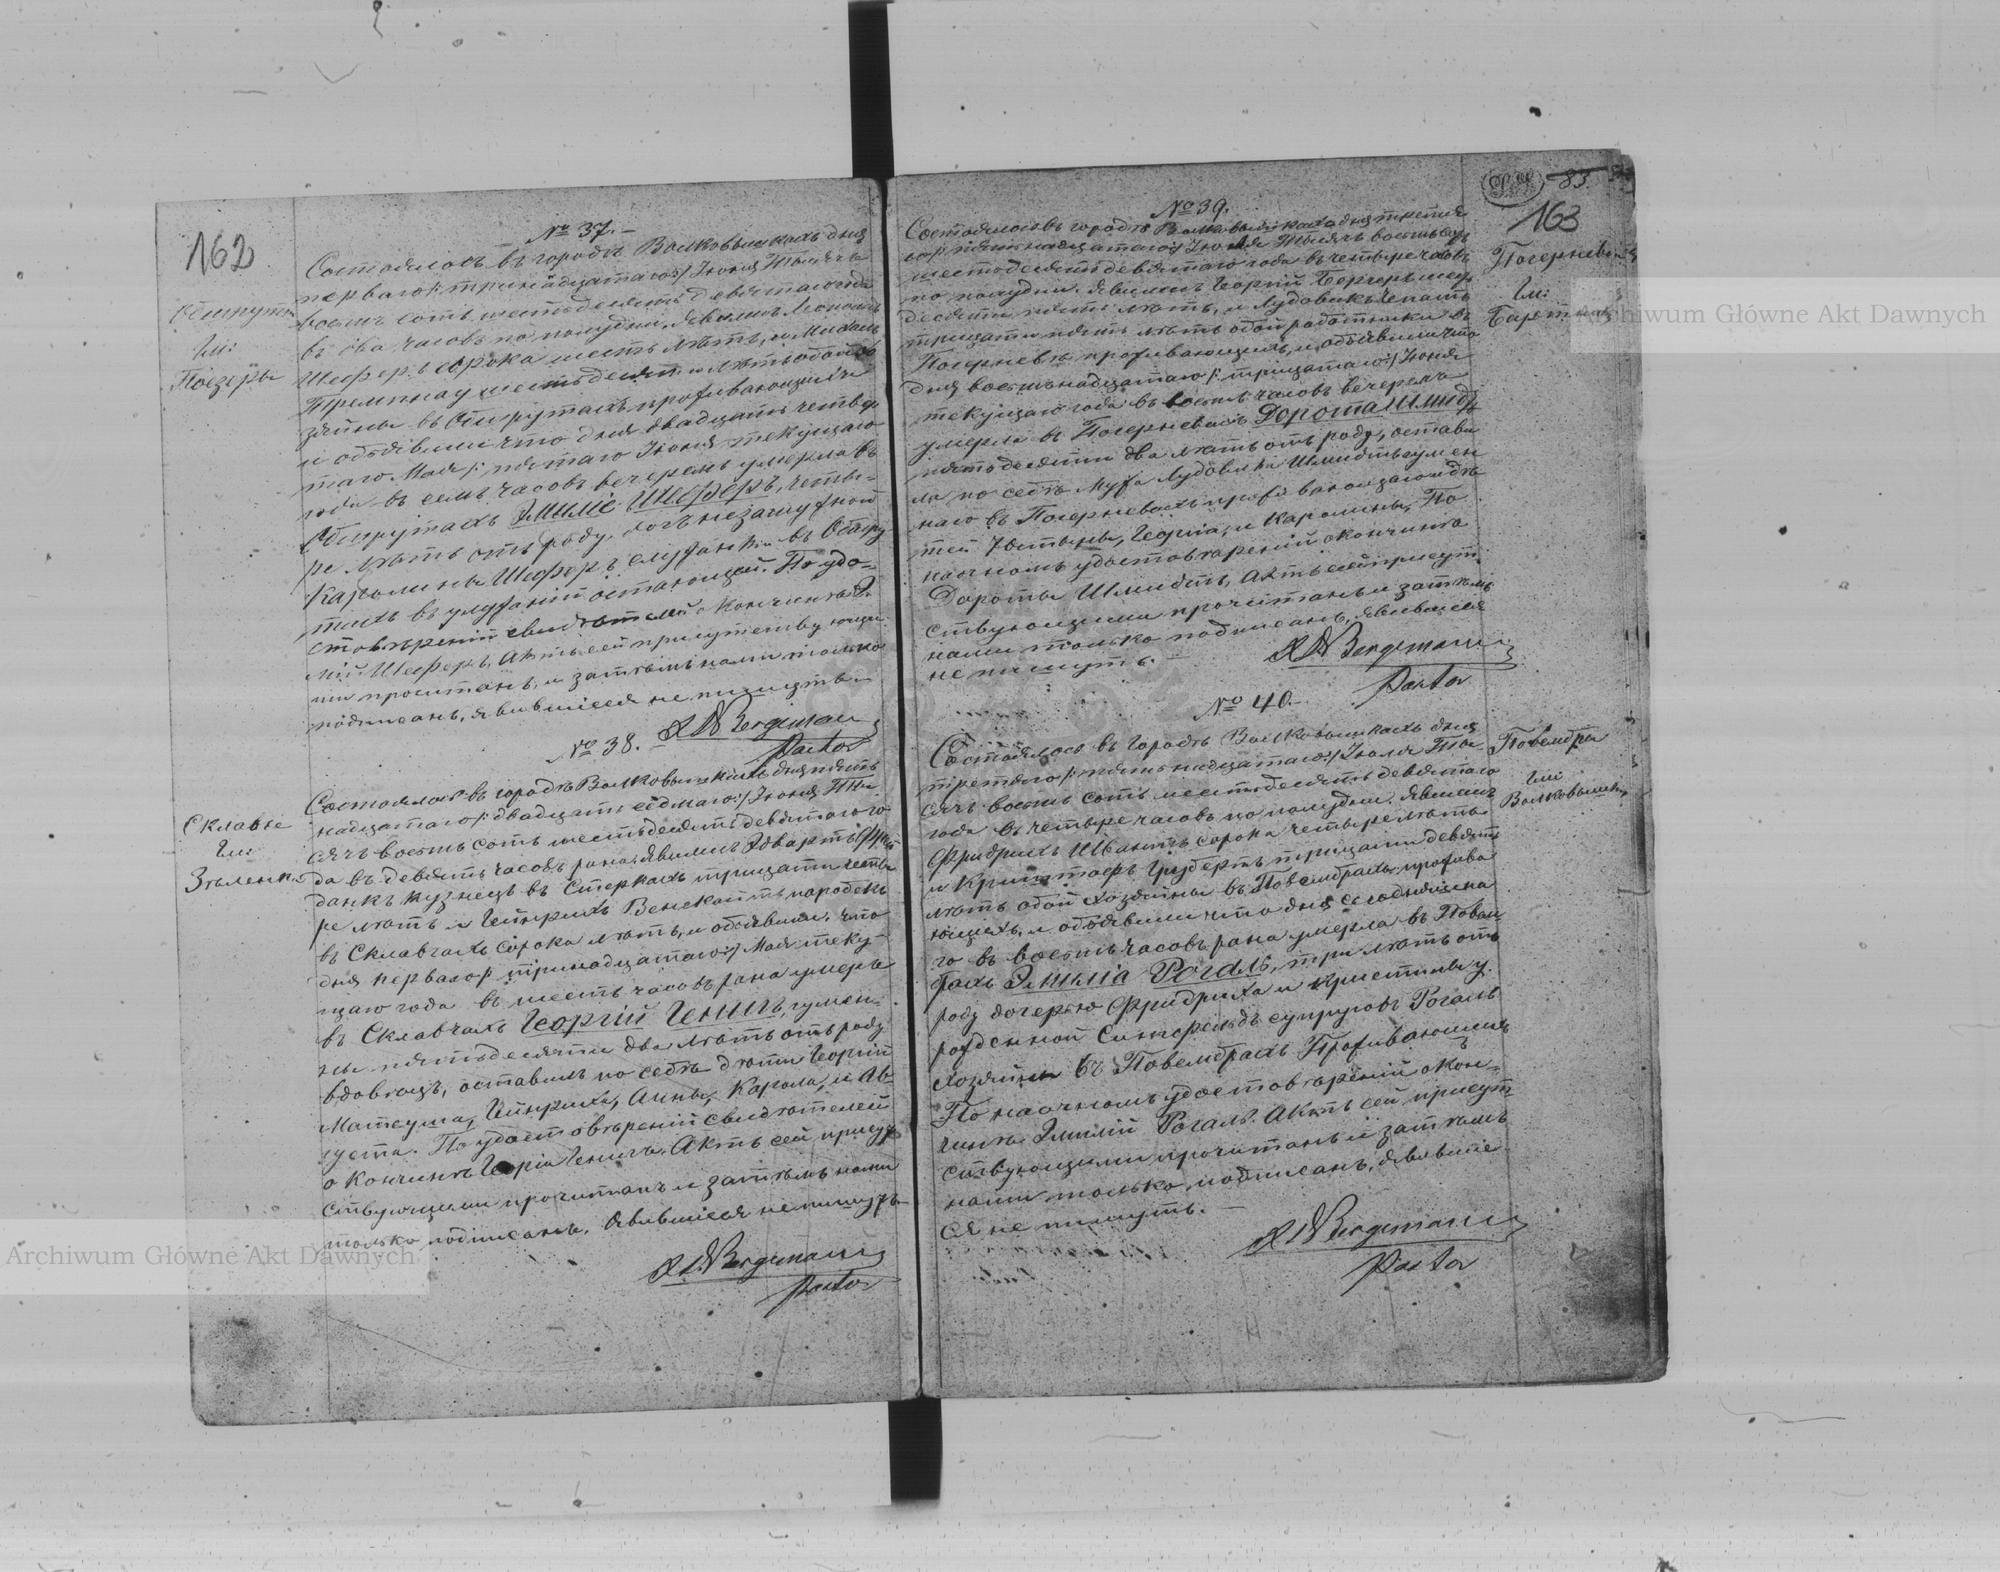 162
Обшруты
Гм:
Поезеры
№ 37.
Состоялось въ городѣ Волковышкахъ дня
перваго /: тринадцатаго :/ Іюня Тысяча
восемь сотъ шестьдесятъ девятаго года
въ два часовъ по полудни. Явились Леопольдъ
Шеферъ сорока шесть лѣтъ, и Михаилъ
Тремпнау шестьдесятъ лѣтъ обой хо
зяины въ Обшрутахъ проживающіи
и объявили что дня двадцать четвер
таго Мая /: пятаго Іюня текущаго
года въ семь часовъ вечеромъ умерла въ
Обшрутахъ Эмилія Шеферъ, четы-
ре лѣтъ отъ роду, дочь незамужной
Каролины Шеферъ служанки въ Обшру
тахъ въ служеніи остающей. По удо-
стовѣреніи свидѣтелей о кончинѣ Э
миліи Шеферъ, Актъ сей присутствующи
ми прочитанъ, и затѣмъ нами только
подписанъ, явившіеся не пишутъ.
Bergemann
Pastor
Склавсе
Гм:
Зѣленка
№ 38.
Состоялось въ городѣ Волковышкахъ дня пять
надцатаго /: двадцать седмаго :/ Іюня Ты
сячъ восемь сотъ шестьдесятъ девятаго го
да въ девять часовъ рана. Явились Эдвартъ Фрей
данкъ кузнецъ въ Стеркахъ тридцати четы
ре лѣтъ и Гейнрихъ Венскайтъ паробокъ
въ Склавчахъ сорока лѣтъ, и объявили, что
дня перваго /: тринадцатаго :/ Мая теку-
щаго года въ шесть часовъ рана умеръ
въ Склавчахъ Георгій Генигъ, гумен-
ны пятьдесяти два лѣтъ отъ роду
вдовецъ, оставилъ по себѣ дѣти Георгій
Матеуша, Гейнриха, Анны, Карола, и Ав-
густа. По удостовѣреніи свидѣтелей
о кончинѣ Георгія Генига, Актъ сей присут
ствующими прочитанъ и затѣмъ нами
только подписанъ. Явившіеся не пишутъ.
Bergemann
Pastor
83
163
Погерневы
Гм:
№ 39.
Состоялось въ городѣ Волковышкахъ дня третія
/: пятнадцатаго :/ Іюля Тысячъ восемь сотъ
шестьдесятъ девятаго года въ четыре часовъ
по полудни. Явились Георгій Бергеръ шес
десяти пять лѣтъ, и Лудовикъ Игнатъ
тридцати пять лѣтъ обой работники въ
Погерневѣ проживающихъ, и объявили что
дня восемьнадцатаго /: тридцатаго :/ Іюня
текущаго года въ восемь часовъ вечеромъ
умерла въ Погерневахъ Дорота Шмидтъ
пятьдесяти два лѣтъ отъ роду, остави
ла по себѣ мужа Лудовика Шмидтъ гумен
наго въ Погерневахъ проживающаго и дѣ
тей Юстыны, Георгія, и Каролины. По
наочномъ удостовѣреніи о кончинѣ
Дороты Шмидтъ, Актъ сей присут-
ствующими прочитанъ и затѣмъ
нами только подписанъ, явившіеся
не пишутъ.
Bergemann
Pastor
Повембры
Гми
Волковышки
№ 40.
Состоялось въ городѣ Волковышкахъ дня
третяго /: пятьнадцатаго :/ Іюля Ты-
сячъ восемь сотъ шестьдесятъ девятаго
года въ четыре часовъ по полудни. Явились
Фридрихъ Швантъ сорока четыре лѣтъ
и Криштофъ Грубертъ тридцати девять
лѣтъ обой хозяины въ Повембрахъ прожива
ющихъ, и объявили что дня сегодняшна
го въ восемь часовъ рана умерла въ Повем
брахъ Эмилія Рогаль, три лѣтъ отъ
роду дочерью Фридриха и Кристины у
рожденной супруговъ Рогаль
хозяины въ Повембрахъ Проживающихъ
По наочномъ удостовѣреніи о кон-
чинѣ Эмиліи Рогаль. Актъ сей присут-
ствующими прочитанъ и затѣмъ
нами только подписанъ, явившіе
ся не пишутъ.
Bergemann
Pastor
Archiwum Główne Akt Dawnych
Archiwum Główne Akt Dawnych